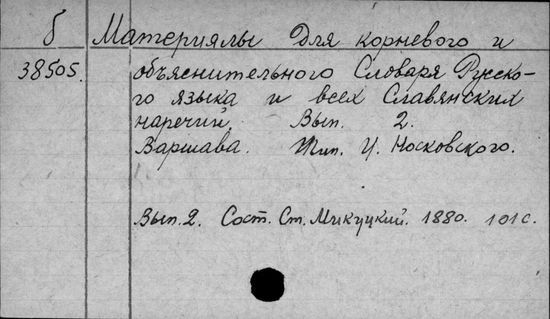 б Материялы для корневого и
38505. объяснительного Словаря Русско-
го языка и всех Славянских
наречий. Вып. 2.
Варшава. Тип. И. Носковского.
Вып. 2. Сост. Ст. Микуцкий. 1880. 101 с.